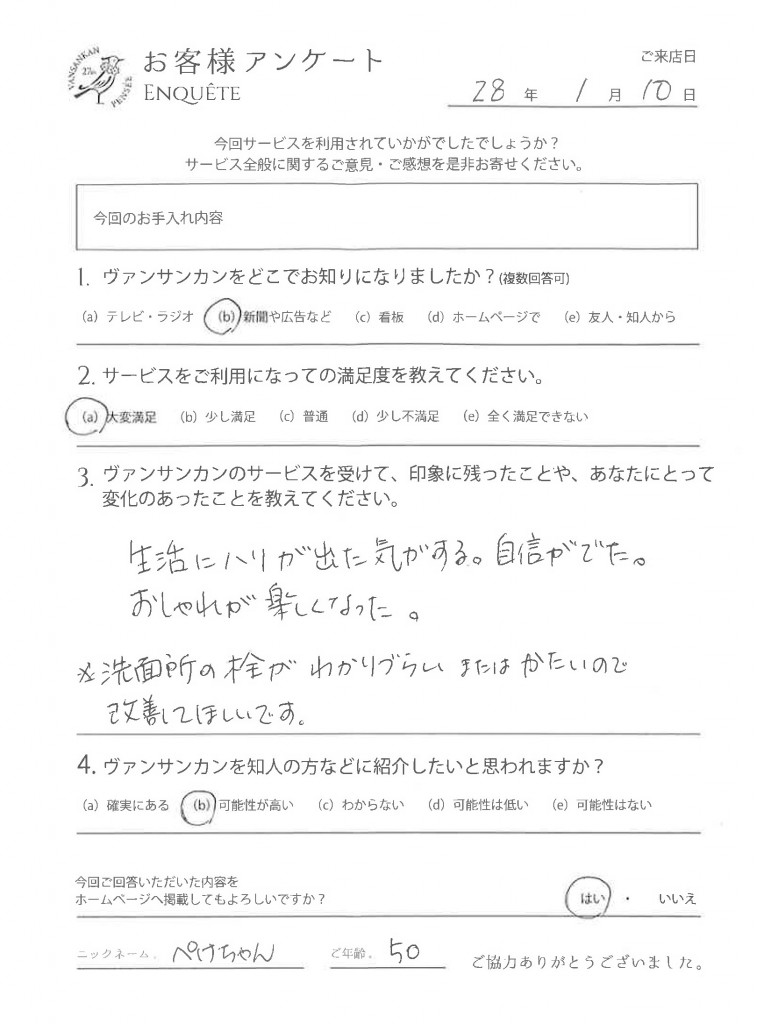 VANSANKAN
27th
PENSÉE
お客様アンケート
ENQUÊTE
ご来店日
28年 1月 10日
今回サービスを利用されていかがでしたでしょうか？
サービス全般に関するご意見・ご感想を是非お寄せください。
今回のお手入れ内容
1. ヴァンサンカンをどこでお知りになりましたか？(複数回答可)
(a) テレビ・ラジオ (b) 新聞や広告など (c) 看板 (d) ホームページで (e) 友人・知人から
2. サービスをご利用になっての満足度を教えてください。
(a) 大変満足 (b) 少し満足 (c) 普通 (d) 少し不満足 (e) 全く満足できない
3. ヴァンサンカンのサービスを受けて、印象に残ったことや、あなたにとって
変化のあったことを教えてください。
生活にハリが出た気がする。自信がでた。
おしゃれが楽しくなった。
※洗面所の栓がわかりづらい またはかたいので
改善してほしいです。
4. ヴァンサンカンを知人の方などに紹介したいと思われますか？
(a) 確実にある (b) 可能性が高い (c) わからない (d) 可能性は低い (e) 可能性はない
今回ご回答いただいた内容を
ホームページへ掲載してもよろしいですか？
はい ・ いいえ
ニックネーム. ぺけちゃん ご年齢. 50 ご協力ありがとうございました。